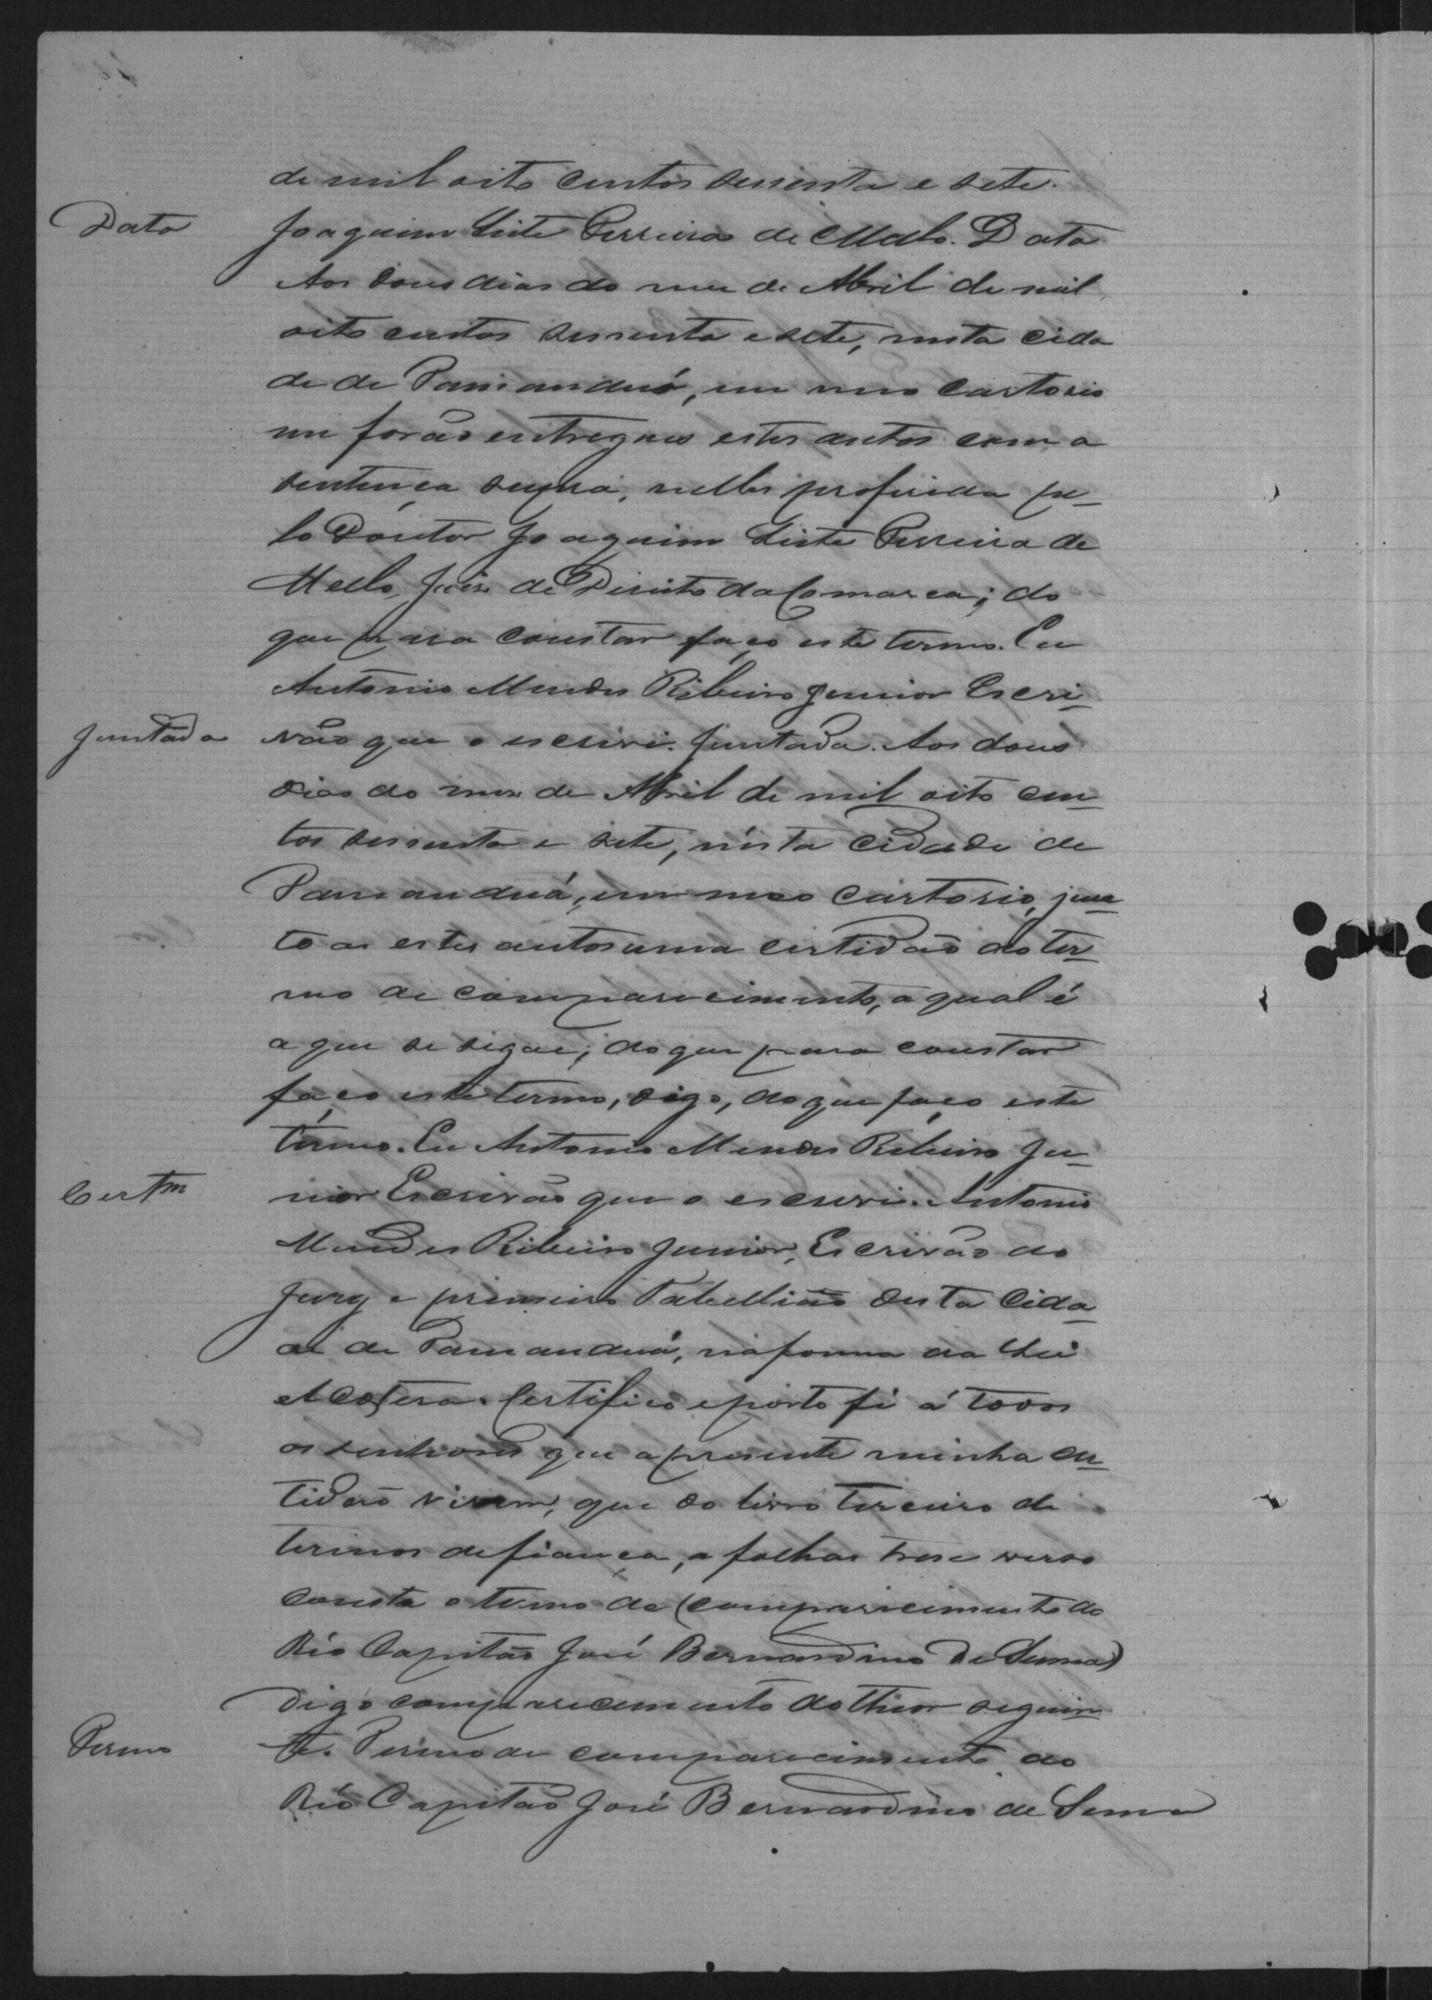 de mil oito centos sessenta e sete.
Data
Joaquim Leite Ferreira de Mello. Data
Aos dous dias do mez de Abril de mil
oito centos sessenta e sete, nesta cida
de de Pamanduá, em meu cartorio
me forão entregues estes autos com a
sentença supra, nelles proferida pe-
lo Doutor Joaquim Leite Ferreira de
Mello, Juiz de Direito da Comarca; do
que para constar faço este termo. Eu
Antonio Mendes Ribeiro Junior Escri-
Juntada
vão que o escrevi. Juntada. Aos dous
dias do mez de Abril de mil oito cen-
tos sessenta e sete, nésta cidade de
Pamanduá, em meo cartorio, jun-
to as estes autos uma certidão do ter-
mo de comparecimento, a qual é
a que se segue; do que para constar
faço este termo, digo, do que faço este
termo. Eu Antonio Mendes Ribeiro Ju-
Certm
nior Escrivão que o escrevi. Antonio
Mendes Ribeiro Junior, Escrivão do
Jury e primeiro Tabellião desta Cida-
de de Pamanduá, na forma da Lei
etcetera. Certifico e porto fé á todos
os senhores que a presente minha cer-
tidão virem, que do livro terceiro de
termos de fiança, a folhas trese verso
consta o termo de (comparecimento do
Réo Capitão José Bernardino de Senna)
digo comparecimento do theor seguin-
Termo
te. Termo de comparecimento do
Réo Capitão José Bernardino de Senna